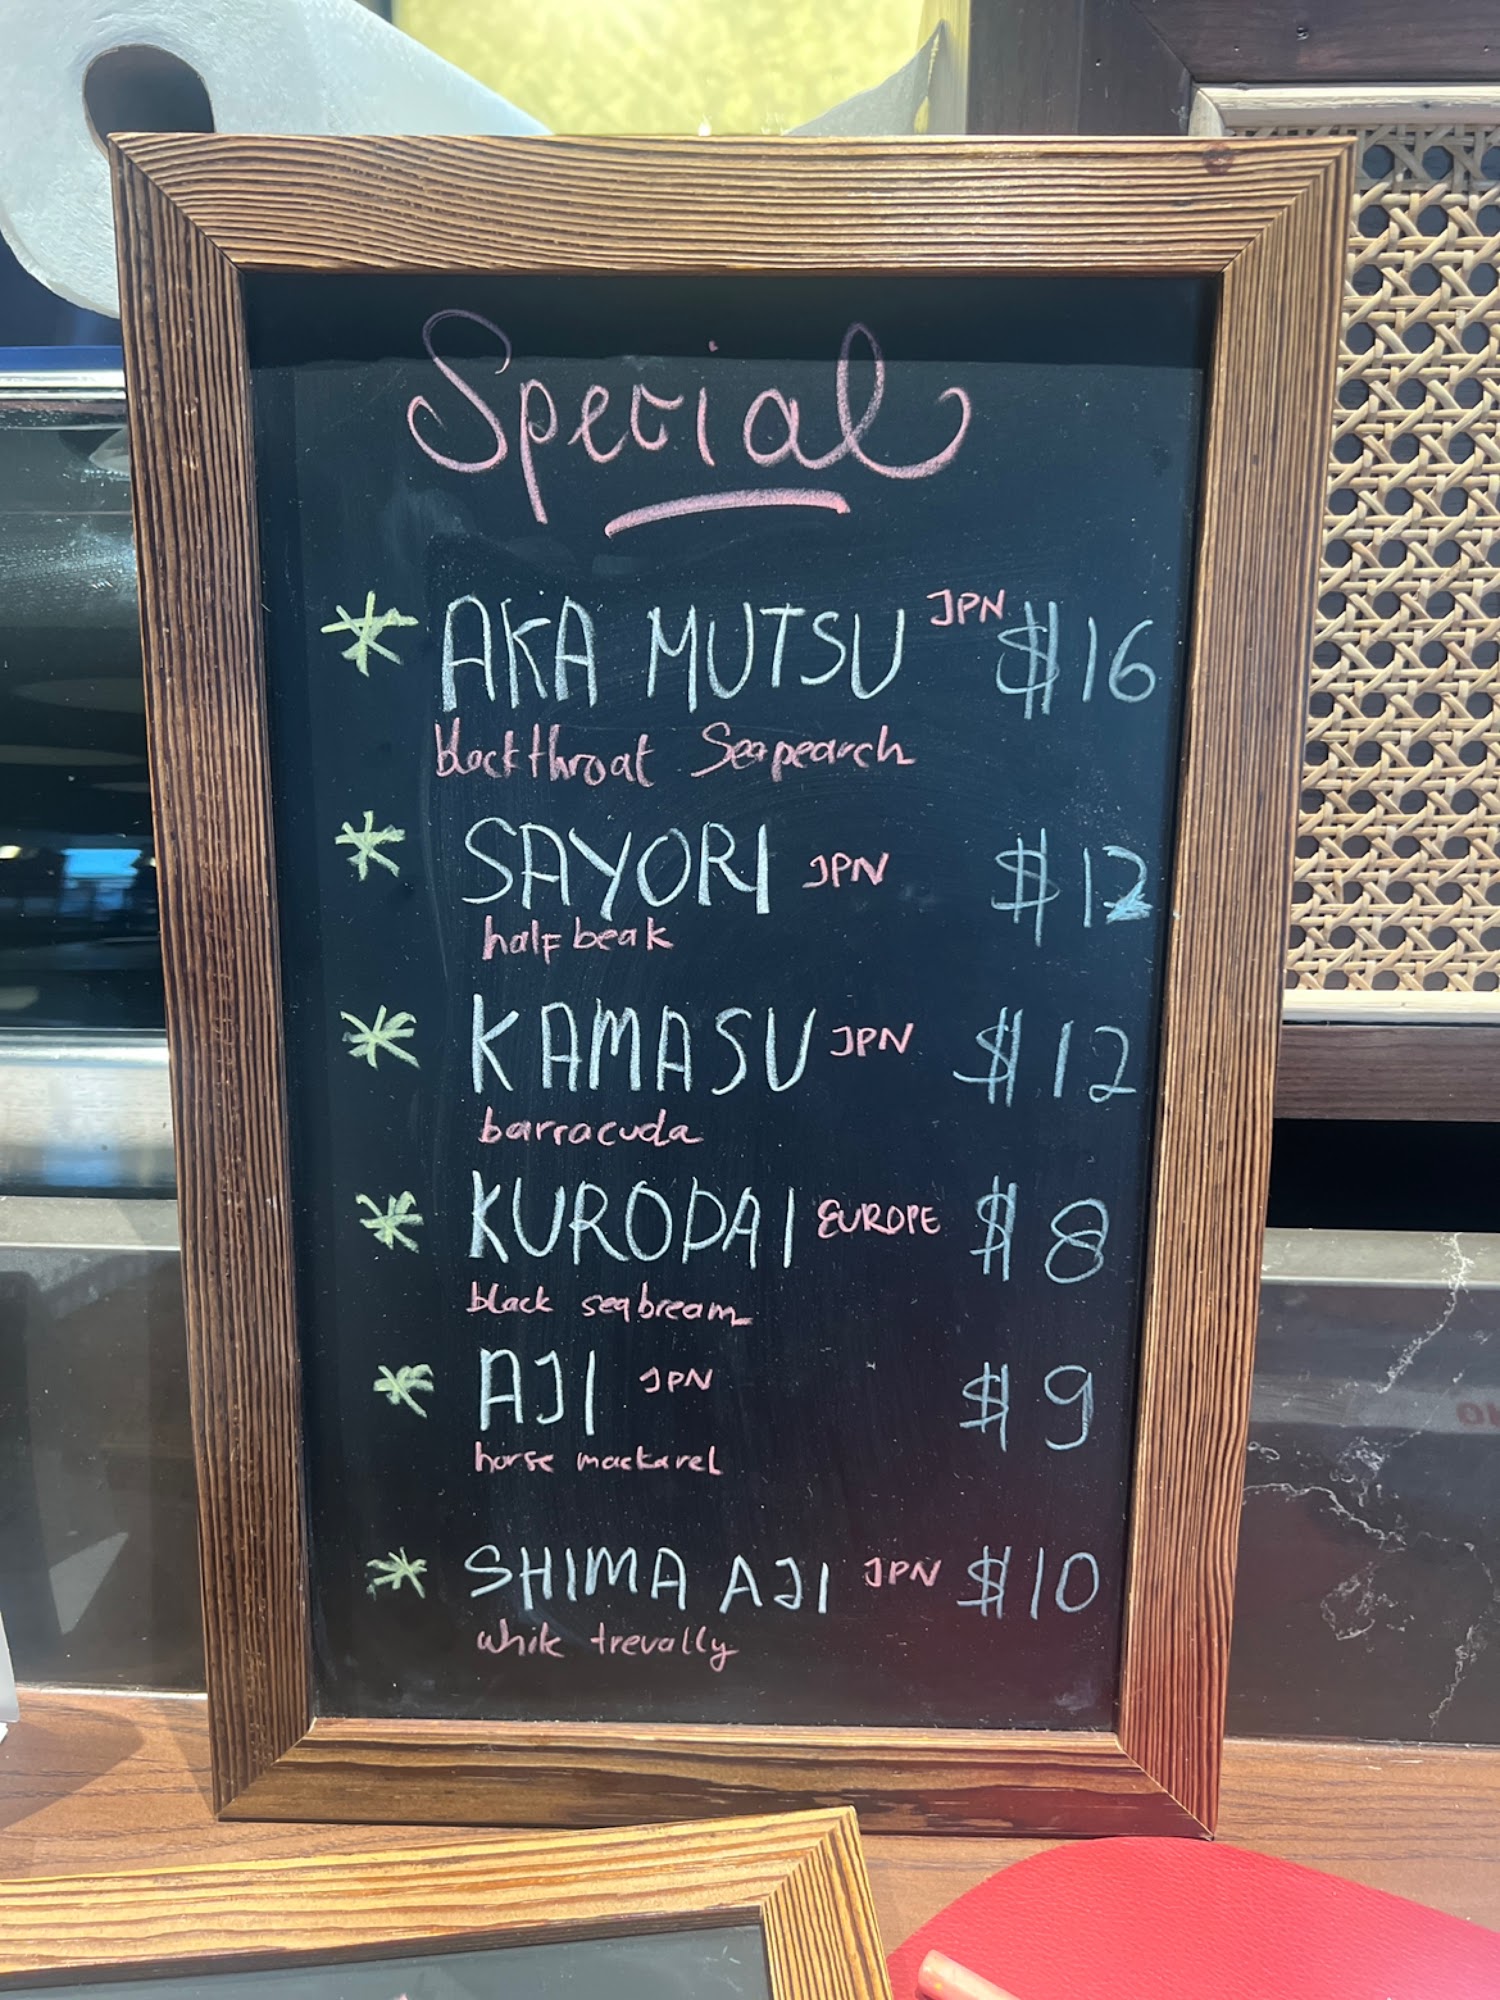 Special
* AKA MUTSU JPN $16
blackthroat Seapearch
* SAYORI JPN $12
halfbeak
* KAMASU JPN $12
barracuda
* KURODAI EUROPE $8
black seabream
* AJI JPN $9
horse mackarel
* SHIMA AJI JPN $10
white trevally